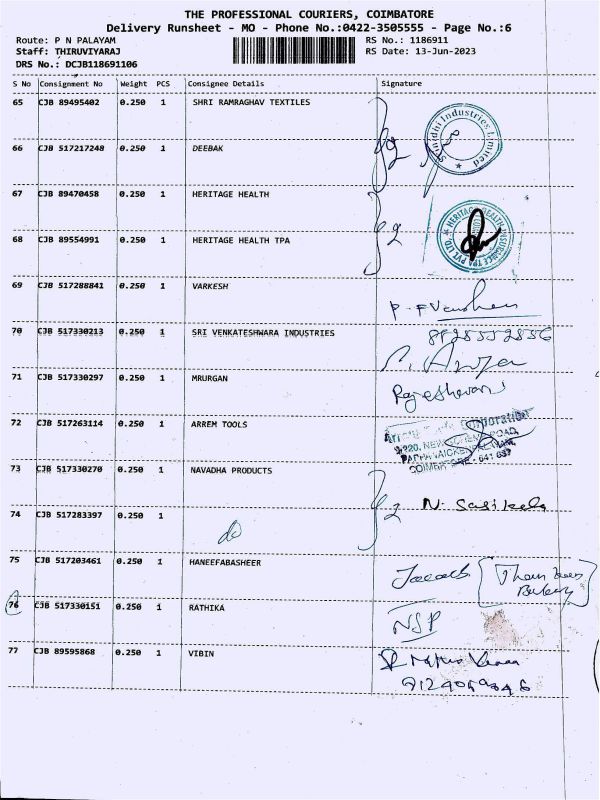 THE PROFESSIONAL COURIERS, COIMBATORE
Delivery Runsheet - MO - Phone No.:0422-3505555 - Page No.:6
Route: P N PALAYAM RS No.: 1186911
Staff: THIRUVIYARAJ RS Date: 13-Jun-2023
DRS No.: DCJB118691106
S No Consignment No Weight PCS Consignee Details Signature
65 CJB 89495402 0.250 1 SHRI RAMRAGHAV TEXTILES
Industries Limited
66 CJB 517217248 0.250 1 DEEBAK
2
67 CJB 89470458 0.250 1 HERITAGE HEALTH
HERITAGE HEALTH INSURANCE TPA PVT LTD.
68 CJB 89554991 0.250 1 HERITAGE HEALTH TPA
2
69 CJB 517288841 0.250 1 VARKESH
70 CJB 517330213 0.250 1 SRI VENKATESHWARA INDUSTRIES
71 CJB 517330297 0.250 1 MRURGAN
Rajeshwari
72 CJB 517263114 0.250 1 ARREM TOOLS
Corporation
COIMBATORE - 641 037
73 CJB 517330270 0.250 1 NAVADHA PRODUCTS
2 N. Sasikala
74 CJB 517283397 0.250 1
do
75 CJB 517203461 0.250 1 HANEEFABASHEER
76 CJB 517330151 0.250 1 RATHIKA
NSP
77 CJB 89595868 0.250 1 VIBIN